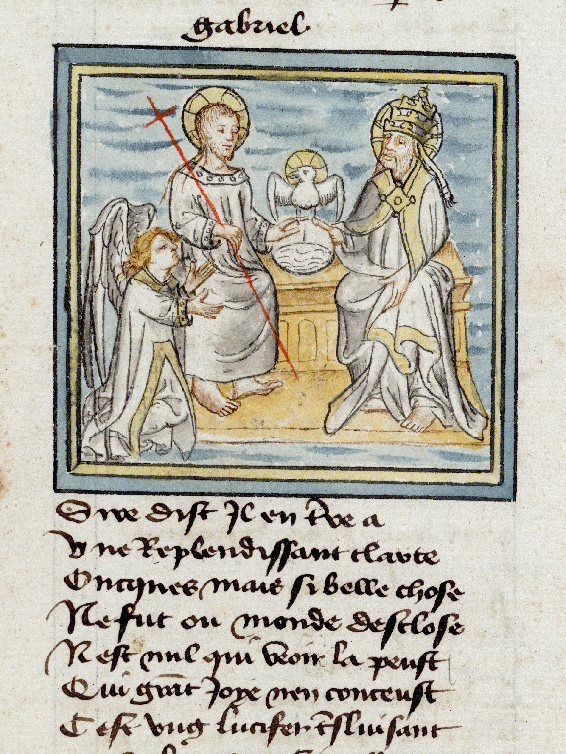 gabriel
Sire dist Il en tre a
Vne Resplendissant clarte
Oncques mais si belle chose
Ne fut ou monde desclose
N est nul qui veoir la peust
Qui grāt Joye nen conceust
C est vng lucifer tsluisant